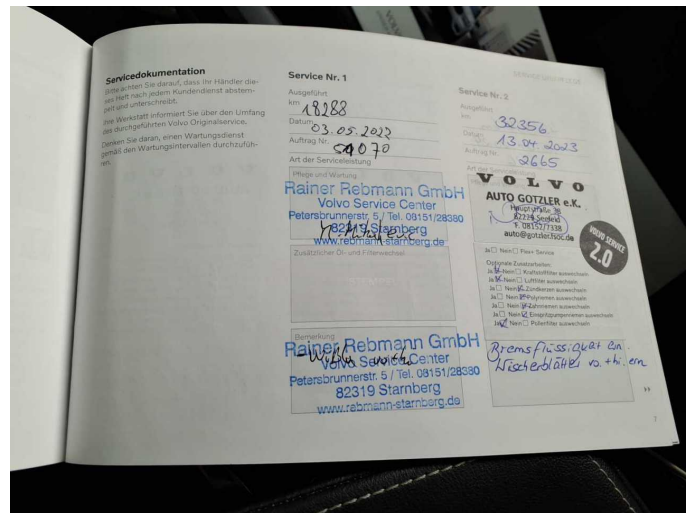 Servicedokumentation
Bitte achten Sie darauf, dass Ihr Händler die-
ses Heft nach jedem Kundendienst abstem-
pelt und unterschreibt.
Ihre Werkstatt informiert Sie über den Umfang
des durchgeführten Volvo Originalservice.
Denken Sie daran, einen Wartungsdienst
gemäß den Wartungsintervallen durchzufüh-
ren.
Service Nr. 1
Ausgeführt
km 18288
Datum 03.05.2022
Auftrag Nr.
Art der Serviceleistung
Pflege und Wartung
Rainer Rebmann GmbH
Volvo Service Center
Petersbrunnerstr. 5 / Tel. 08151/28380
82319 Starnberg
www.rebmann-starnberg.de
Zusätzlicher Öl- und Filterwechsel
Bemerkung
Rainer Rebmann GmbH
Volvo Service Center
Petersbrunnerstr. 5 / Tel. 08151/28380
82319 Starnberg
www.rebmann-starnberg.de
Service Nr. 2
Ausgeführt
km 32356
Datum 13.04.2023
Auftrag Nr. 2665
Art der Serviceleistung
VOLVO
AUTO GOTZLER e.K.
Hauptstraße 38
82229 Seefeld
T. 08152/7338
auto@gotzler.fsoc.de
VOLVO SERVICE
2.0
Ja Nein Fixx+ Service
Optionale Zusatzarbeiten:
Ja Nein Kraftstofffilter auswechseln
Ja Nein Luftfilter auswechseln
Ja Nein Zündkerzen auswechseln
Ja Nein Polyriemen auswechseln
Ja Nein Zahnriemen auswechseln
Ja Nein Einspritzpumpenriemen auswechseln
Ja Nein Pollenfilter auswechseln
Bremsflüssigkeit ern.
Wischerblätter vo. + hi. ern
7